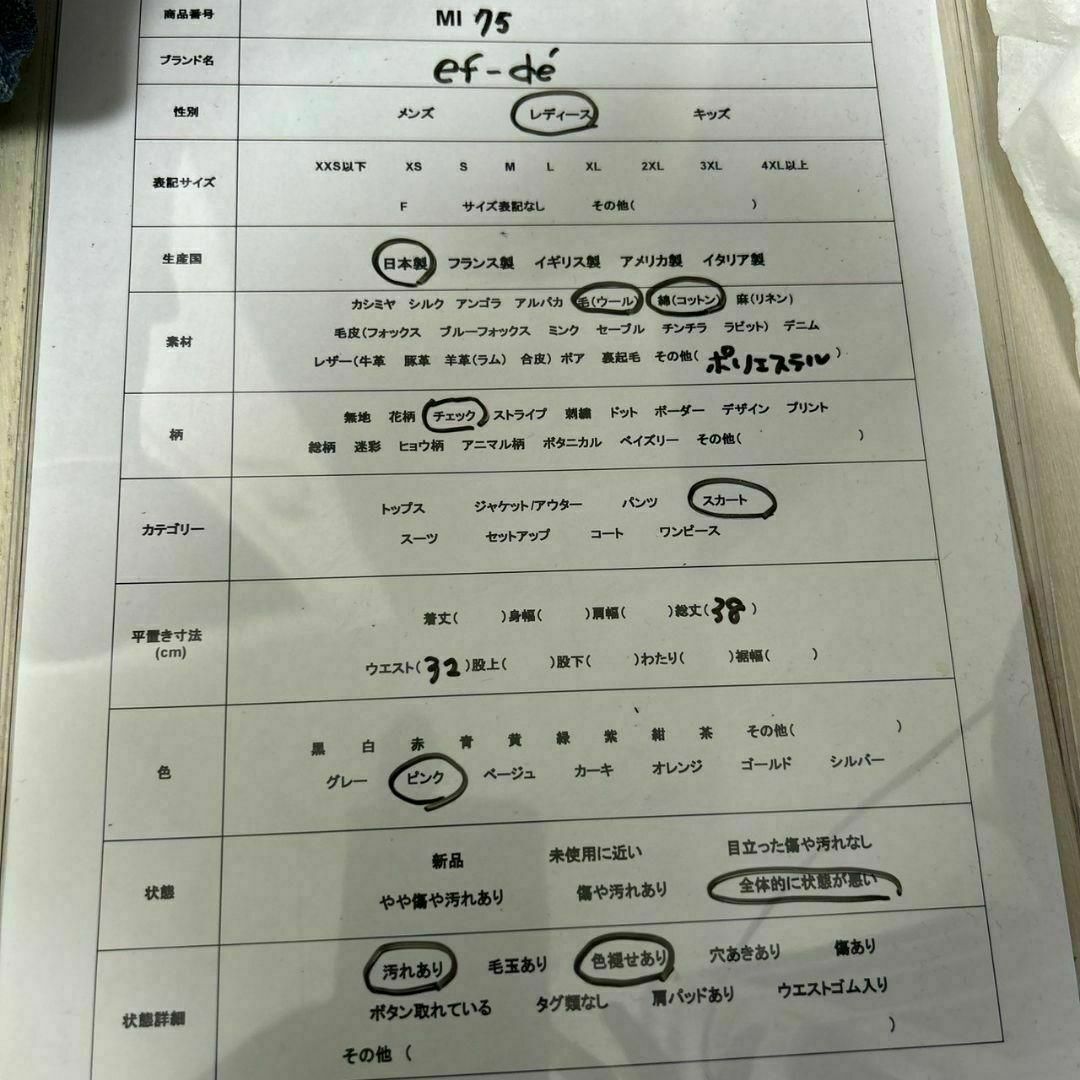 商品番号 MI 75
ブランド名 ef-dé
性別 メンズ レディース キッズ
表記サイズ XXS以下 XS S M L XL 2XL 3XL 4XL以上
F サイズ表記なし その他( )
生産国 日本製 フランス製 イギリス製 アメリカ製 イタリア製
カシミヤ シルク アンゴラ アルパカ 毛(ウール) 綿(コットン) 麻(リネン)
素材 毛皮(フォックス ブルーフォックス ミンク セーブル チンチラ ラビット) デニム
レザー(牛革 豚革 羊革(ラム) 合皮) ボア 裏起毛 その他( ポリエステル )
柄 無地 花柄 チェック ストライプ 刺繍 ドット ボーダー デザイン プリント
総柄 迷彩 ヒョウ柄 アニマル柄 ボタニカル ペイズリー その他( )
カテゴリー トップス ジャケット/アウター パンツ スカート
スーツ セットアップ コート ワンピース
平置き寸法 着丈( )身幅( )肩幅( )総丈( 38 )
(cm) ウエスト( 32 )股上( )股下( )わたり( )裾幅( )
色 黒 白 赤 青 黄 緑 紫 紺 茶 その他( )
グレー ピンク ベージュ カーキ オレンジ ゴールド シルバー
状態 新品 未使用に近い 目立った傷や汚れなし
やや傷や汚れあり 傷や汚れあり 全体的に状態が悪い
状態詳細 汚れあり 毛玉あり 色褪せあり 穴あきあり 傷あり
ボタン取れている タグ類なし 肩パッドあり ウエストゴム入り
その他 ( )